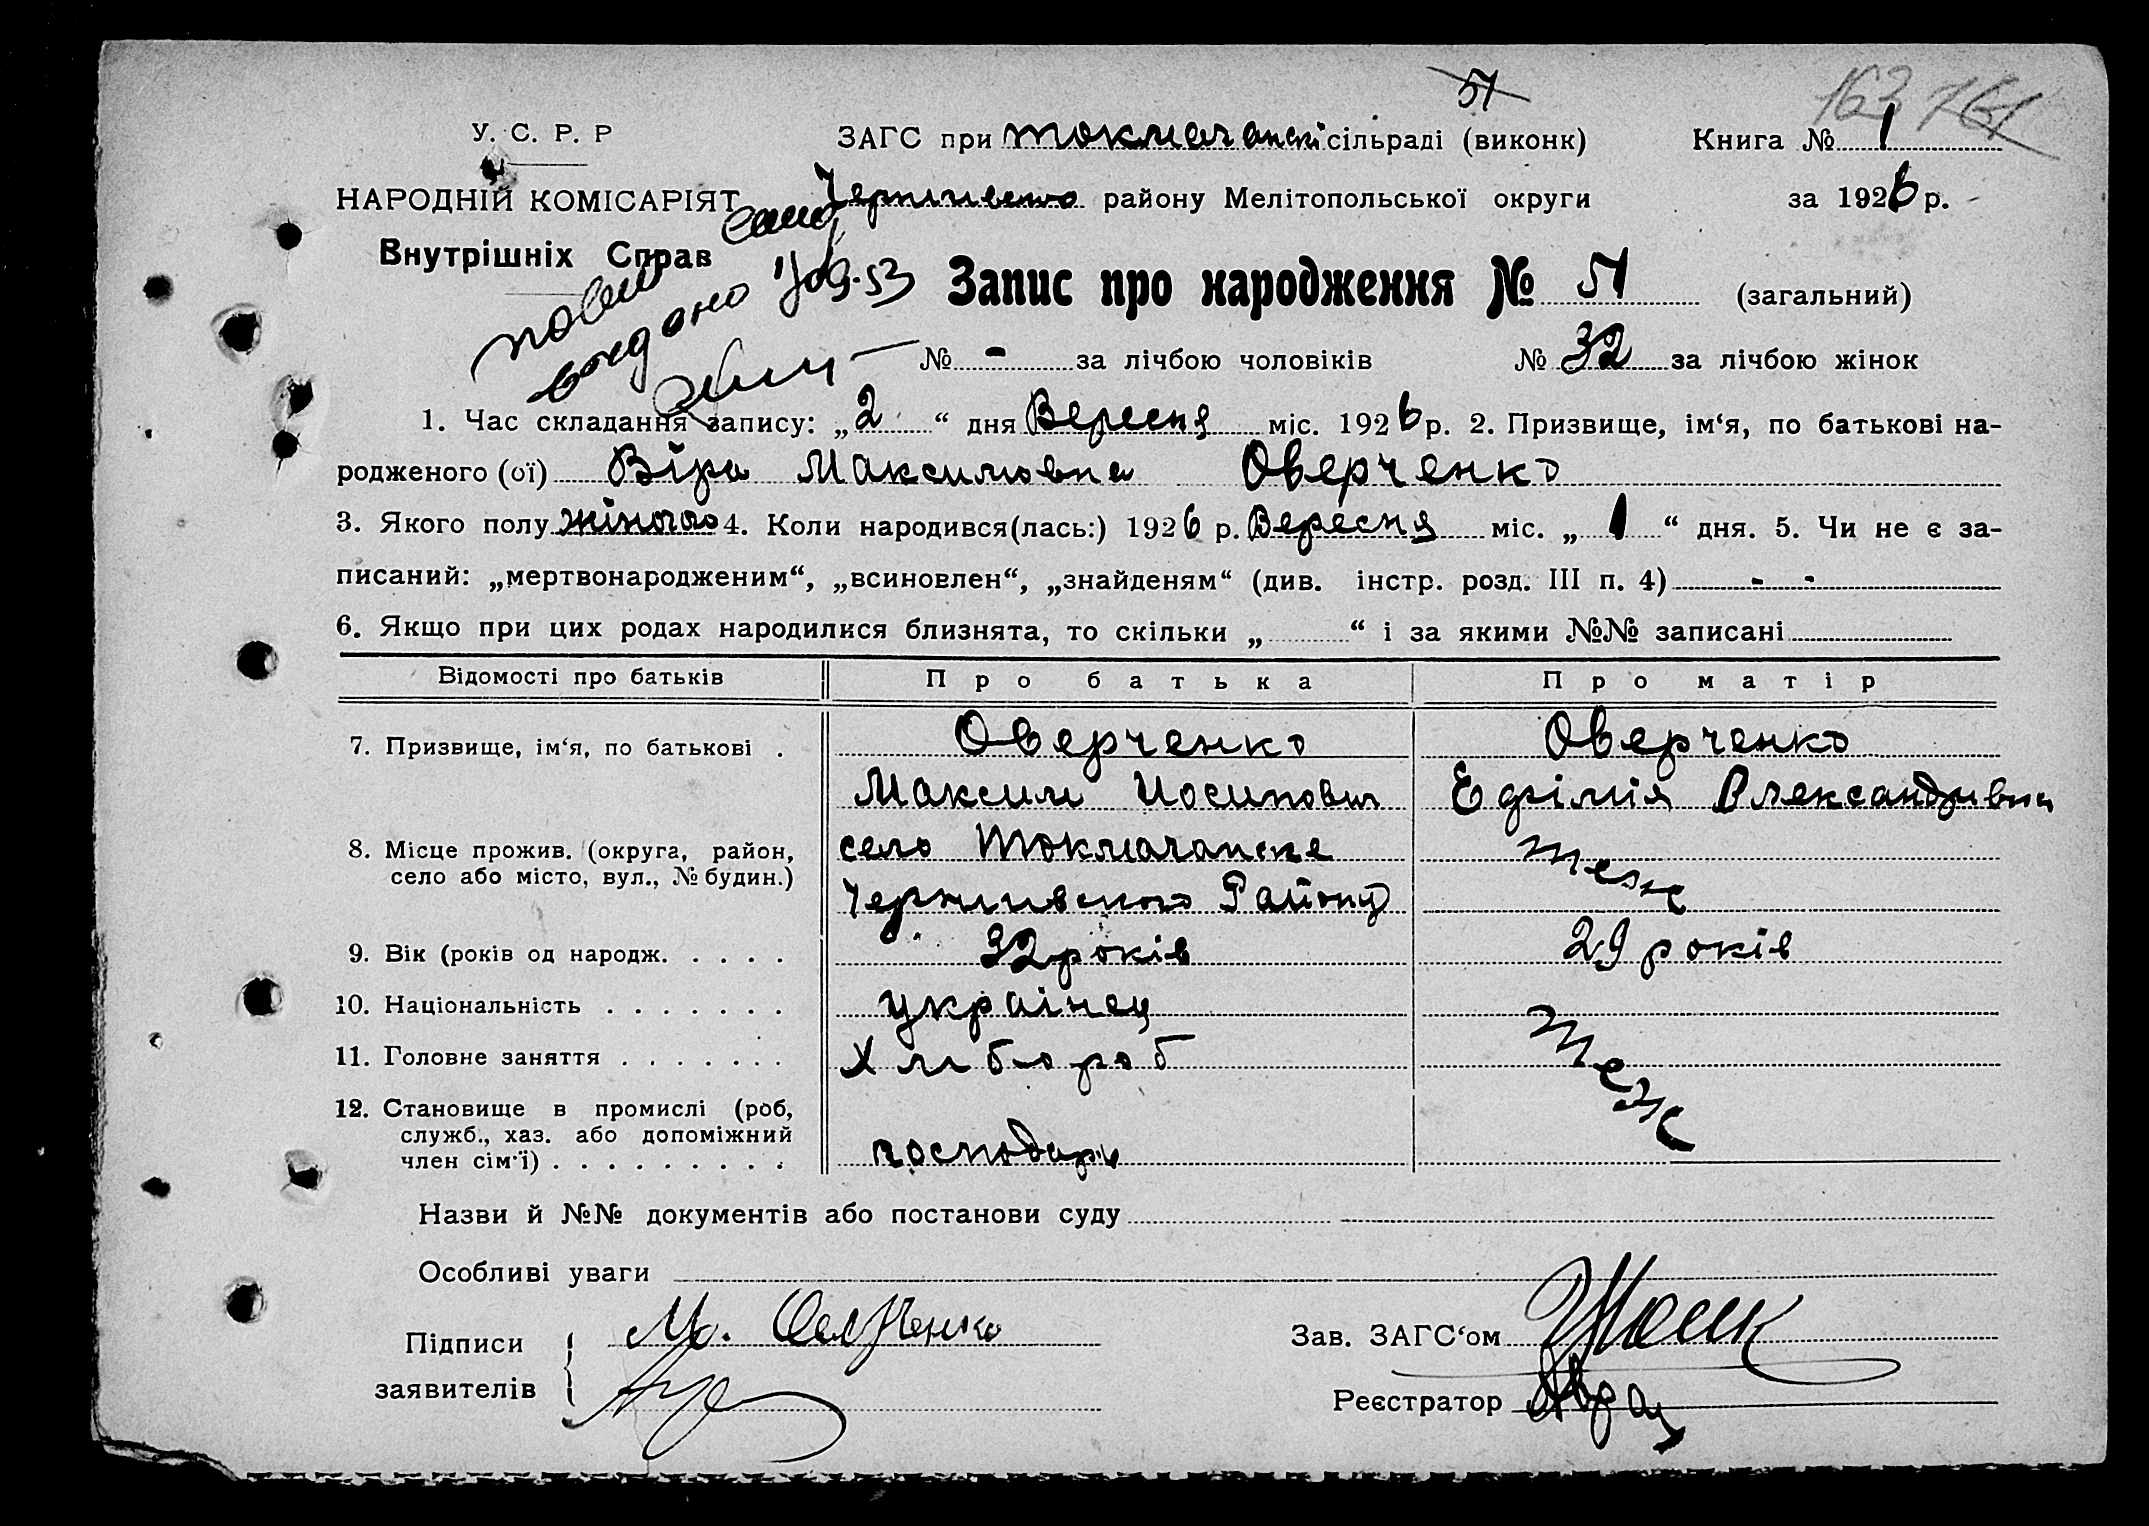 51
163 761
У. С. Р. Р ЗАГС при Токмачанскі сільраді (виконк) Книга № 1
НАРОДНІЙ КОМІСАРІЯТ районy Мелітопольської округи за 1926 р.
Внутрішніх Справ
Запис про народження № 51 (загальний)
повт
видано
№ - за лічбою чоловіків № 32 за лічбою жінок
1. Час складання запису: „2“ дня Вересня міс. 1926 р. 2. Призвище, ім‘я, по батькові на-
родженого (ої) Віра Максимовна Оверченко
3. Якого полу жіночого 4. Коли народився(лась:) 1926 р. Вересня міс. „1“ дня. 5. Чи не є за-
писаний: „мертвонародженим“, „всиновлен“, „знайденям“ (див. інстр. розд. III п. 4) - -
6. Якщо при цих родах народилися близнята, то скільки „ “ і за якими №№ записані
Відомості про батьків Про батька Про матір
7. Призвище, ім‘я, по батькові . Оверченко Оверченко
Максим Иосипович Ефімія Александривна
8. Місце прожив. (округа, район, село Токмачанске теж
село або місто, вул., № будин.) Чернигивского Району
9. Вік (років од народж. . . . . 32 років 29 років
10. Національність . . . . . . . українец теж
11. Головне заняття . . . . . . . Хлибороб
12. Становище в промислі (роб,
служб., хаз. або допоміжний
член сім‘ї) . . . . . . . . . господарь
Назви й №№ документів або постанови суду
Особливі уваги
Підписи М. Оверченко Зав. ЗАГС‘ом
заявителів Реєстратор